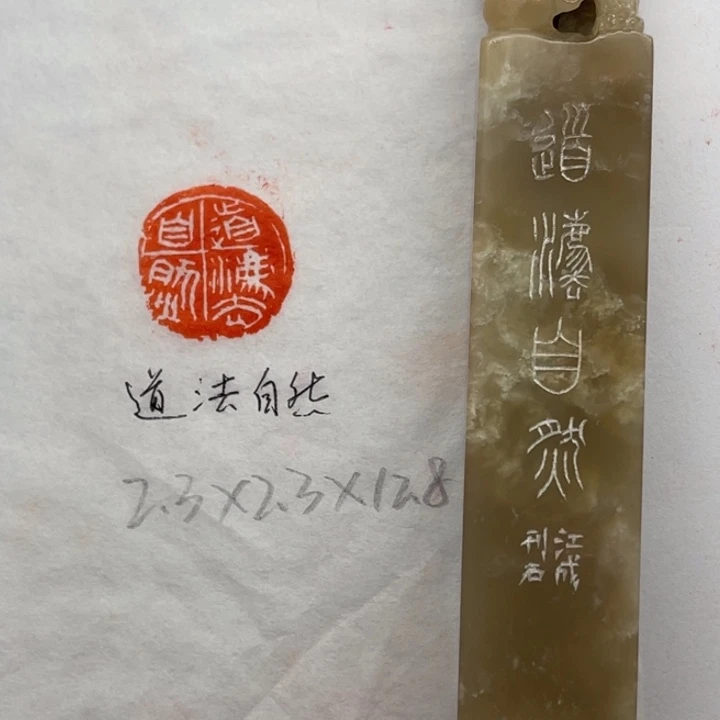 道灋
自然
道法自然
2.3×2.3×12.8
道灋自然
江成
刊石